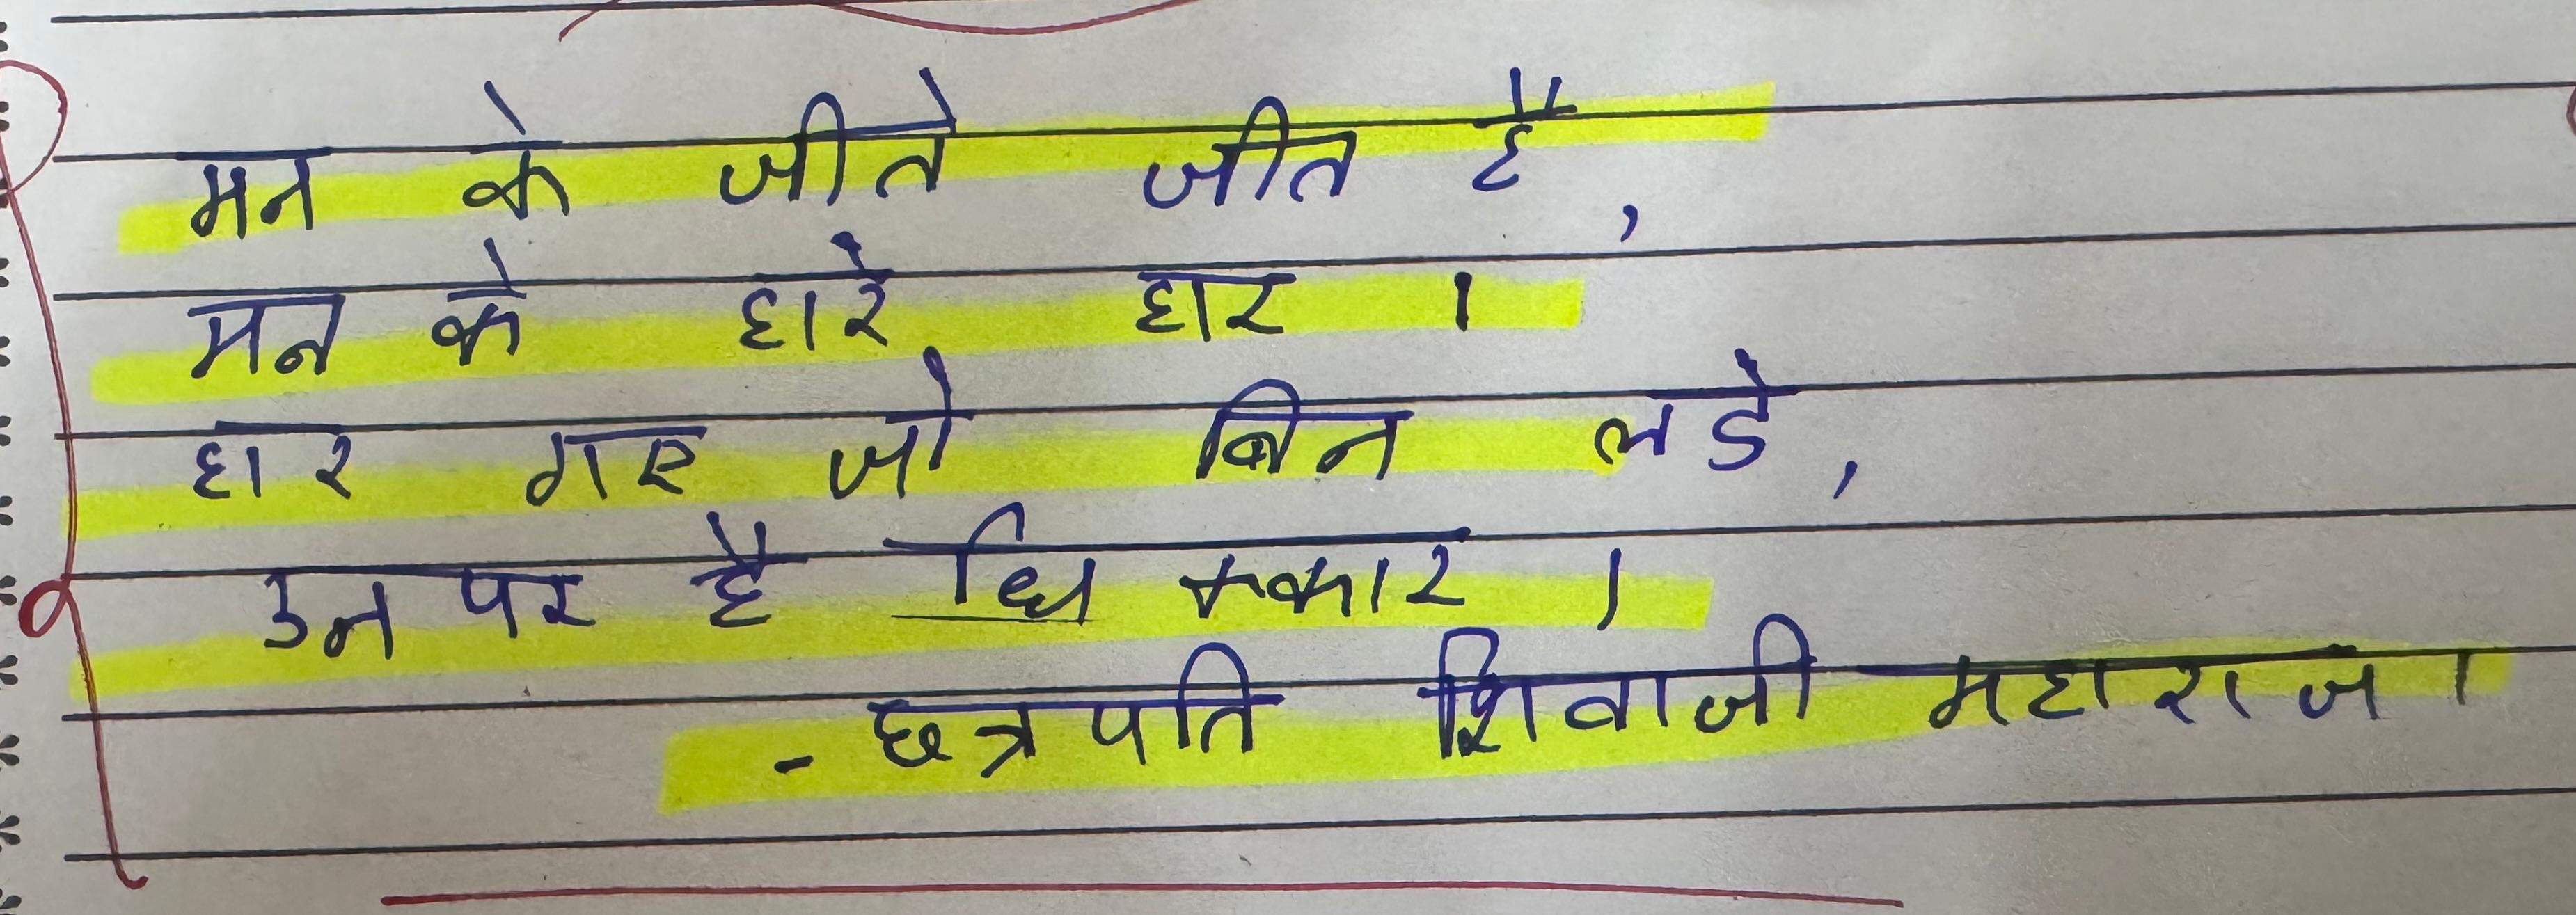 मन के जीते जीत है,
मन के हारे हार ।
हार गए जो बिन लडे,
उन पर है धिक्कार ।
- छत्रपति शिवाजी महाराज ।